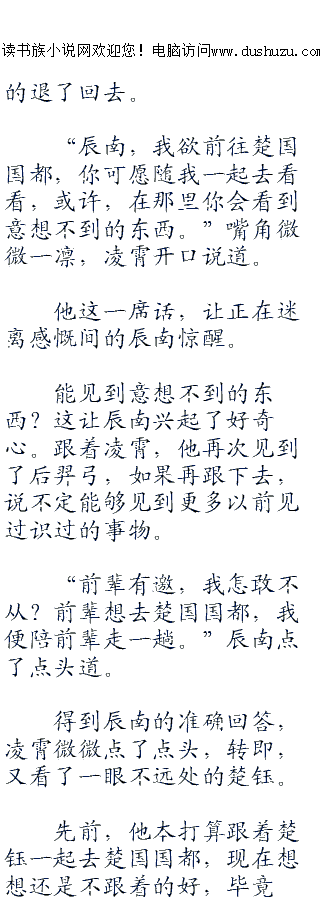 读书族小说网欢迎您！电脑访问www.dushuzu.com
的退了回去。
“辰南，我欲前往楚国
国都，你可愿随我一起去看
看，或许，在那里你会看到
意想不到的东西。”嘴角微
微一凛，凌霄开口说道。
他这一席话，让正在迷
离感慨间的辰南惊醒。
能见到意想不到的东
西？这让辰南兴起了好奇
心。跟着凌霄，他再次见到
了后羿弓，如果再跟下去，
说不定能够见到更多以前见
过识过的事物。
“前辈有邀，我怎敢不
从？前辈想去楚国国都，我
便陪前辈走一趟。”辰南点
了点头道。
得到辰南的准确回答，
凌霄微微点了点头，转即，
又看了一眼不远处的楚钰。
先前，他本打算跟着楚
钰一起去楚国国都，现在想
想还是不跟着的好，毕竟